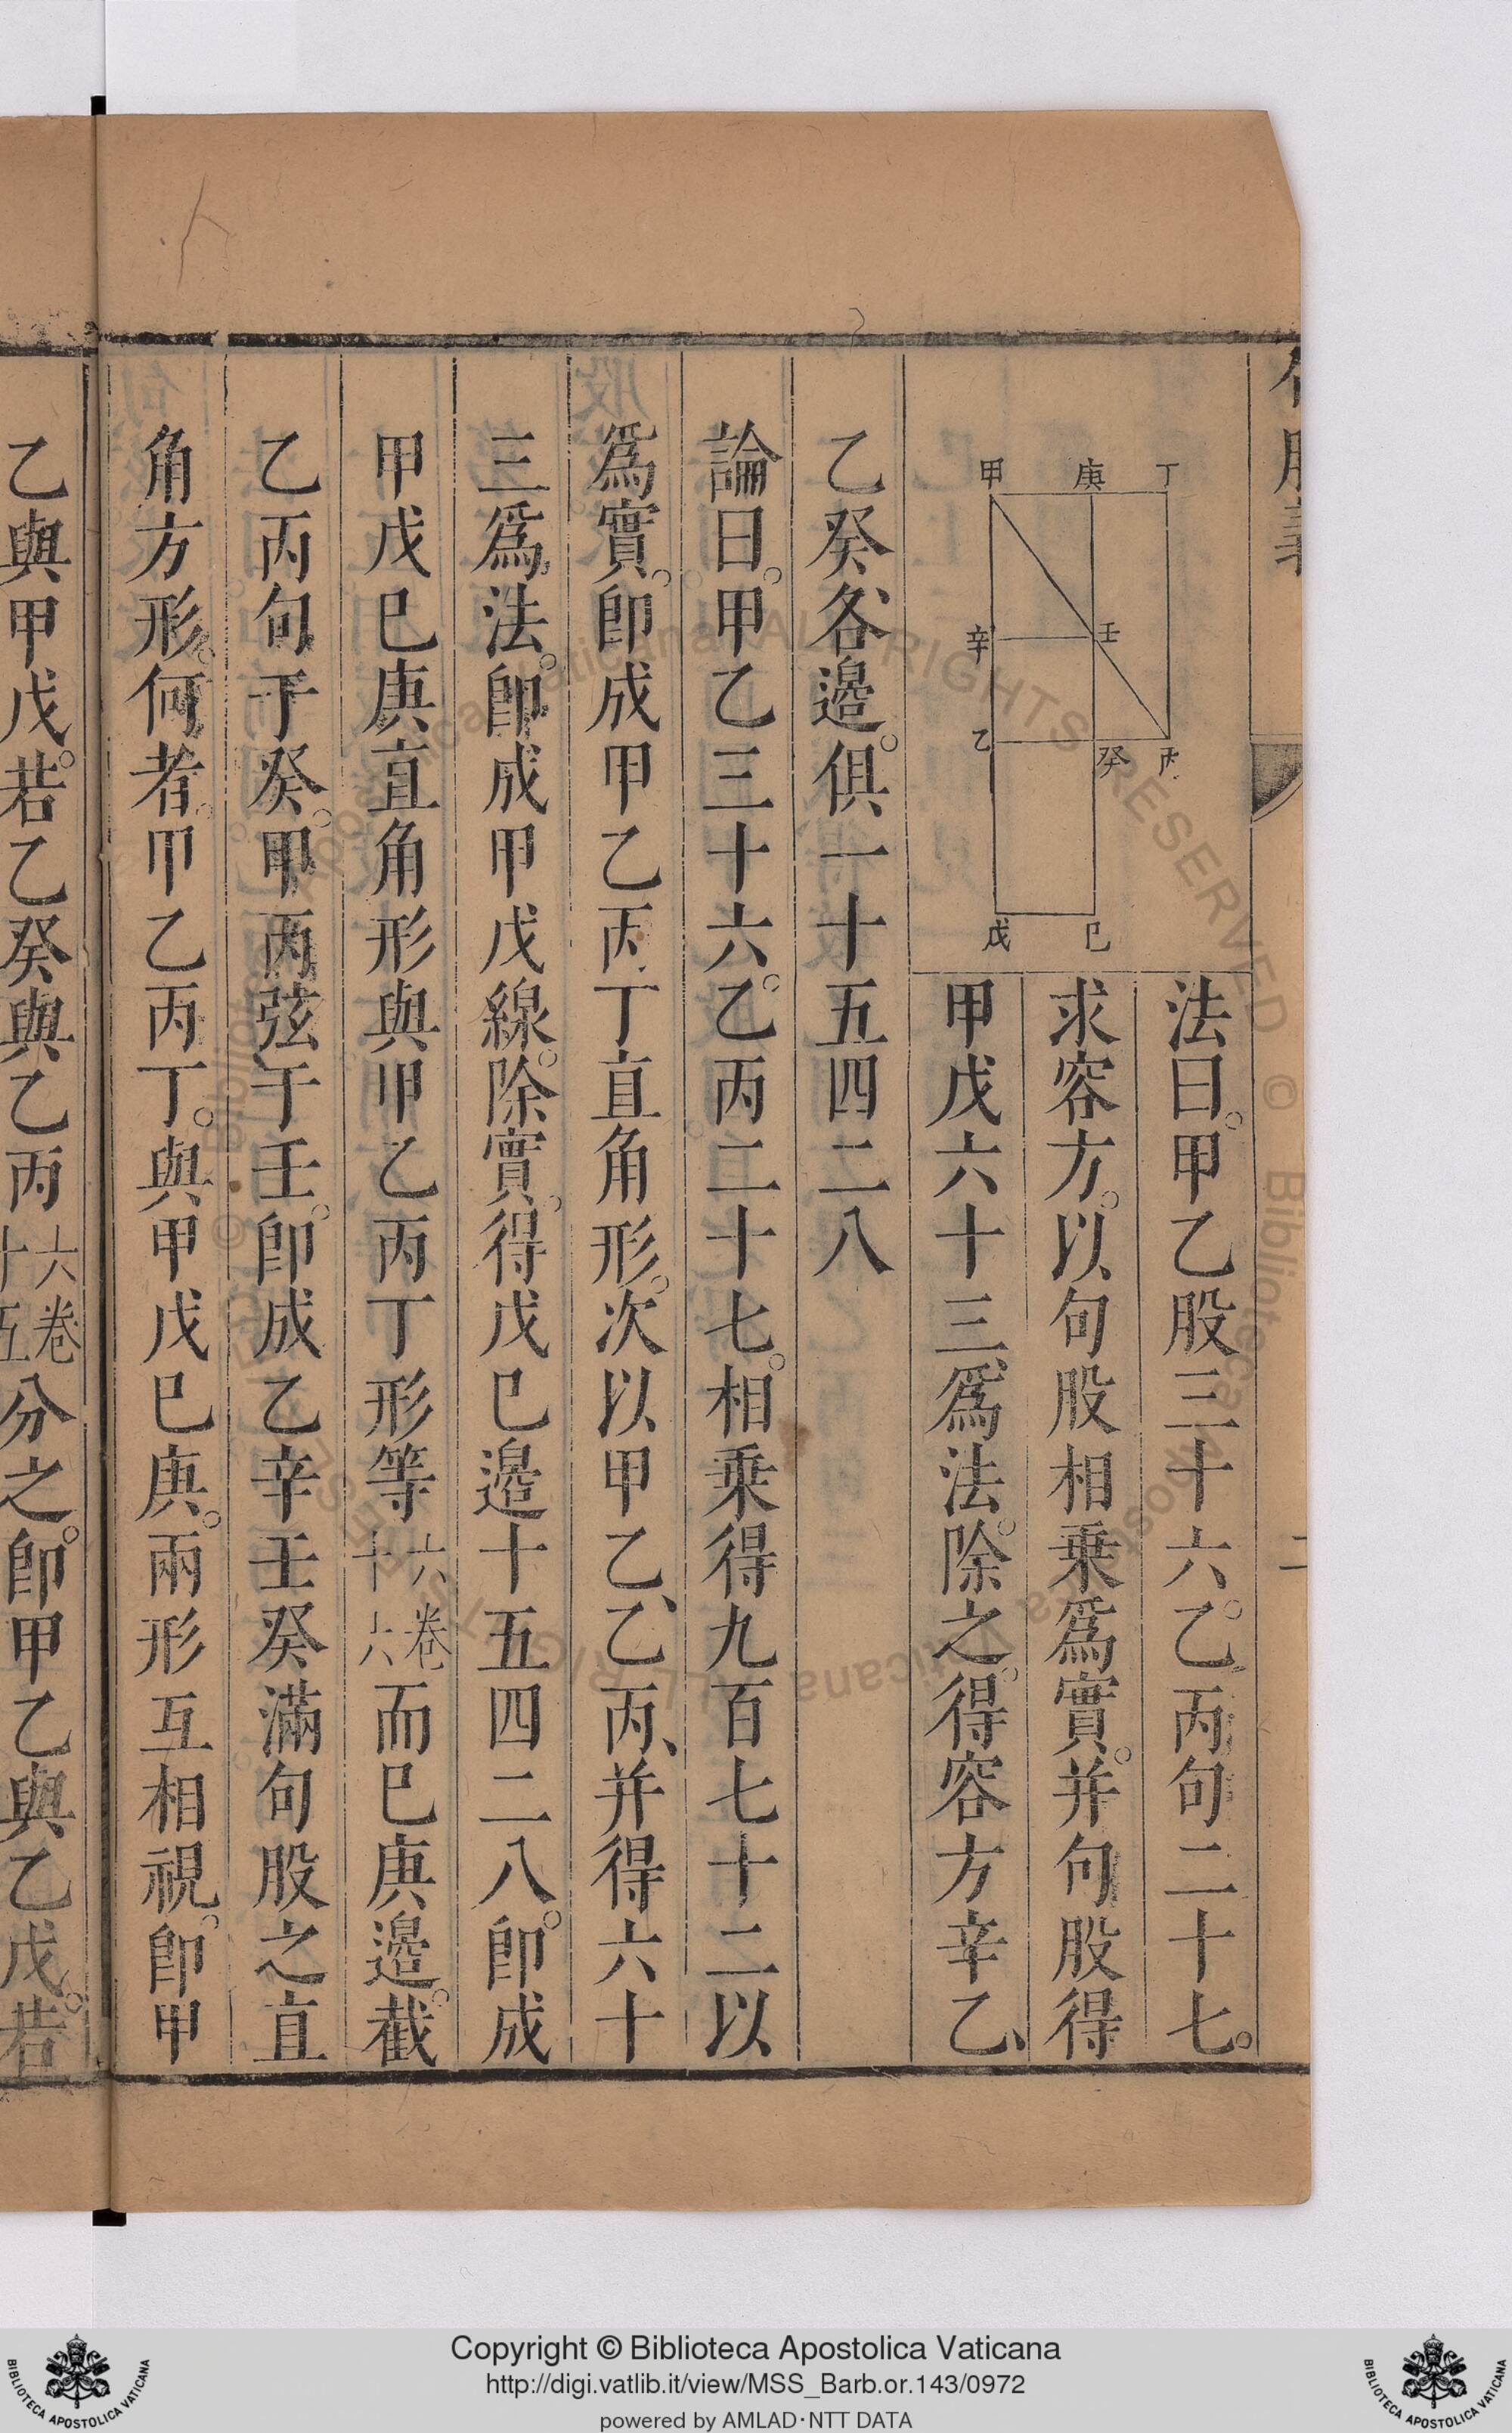 法曰。甲乙股三十六。乙丙句二十七。
求容方。以句股相乘爲實。并句股得
甲戊六十三爲法。除之。得容方辛乙、
甲
庚
丁
辛
壬
乙
癸
丙
戊
己
乙癸各邊。俱一十五四二八
論曰。甲乙三十六。乙丙二十七。相乘得九百七十二以
爲實。卽成甲乙丙丁直角形。次以甲乙、乙丙、并得六十
三爲法。卽成甲戊線。除實。得戊巳邊十五四二八。卽成
甲戊巳庚直角形與甲乙丙丁形等六卷十六而巳庚邊。截
乙丙句于癸。甲丙弦于壬。卽成乙辛壬癸滿句股之直
角方形。何者。甲乙丙丁。與甲戊巳庚。兩形互相視。卽甲
乙與甲戊。若乙癸與乙丙六卷十五分之。卽甲乙與乙戊。若
二
Copyright © Biblioteca Apostolica Vaticana
http://digi.vatlib.it/view/MSS_Barb.or.143/0972
powered by AMLAD·NTT DATA
BIBLIOTECA APOSTOLICA VATICANA
BIBLIOTECA APOSTOLICA VATICANA